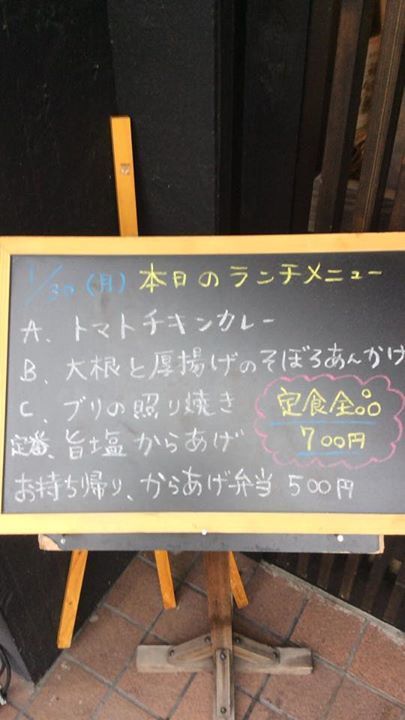 1/30 (月) 本日のランチメニュー
A、トマトチキンカレー
B、大根と厚揚げのそぼろあんかけ
C、ブリの照り焼き
定番、旨塩からあげ
定食全品
700円
お持ち帰り、からあげ弁当 500円